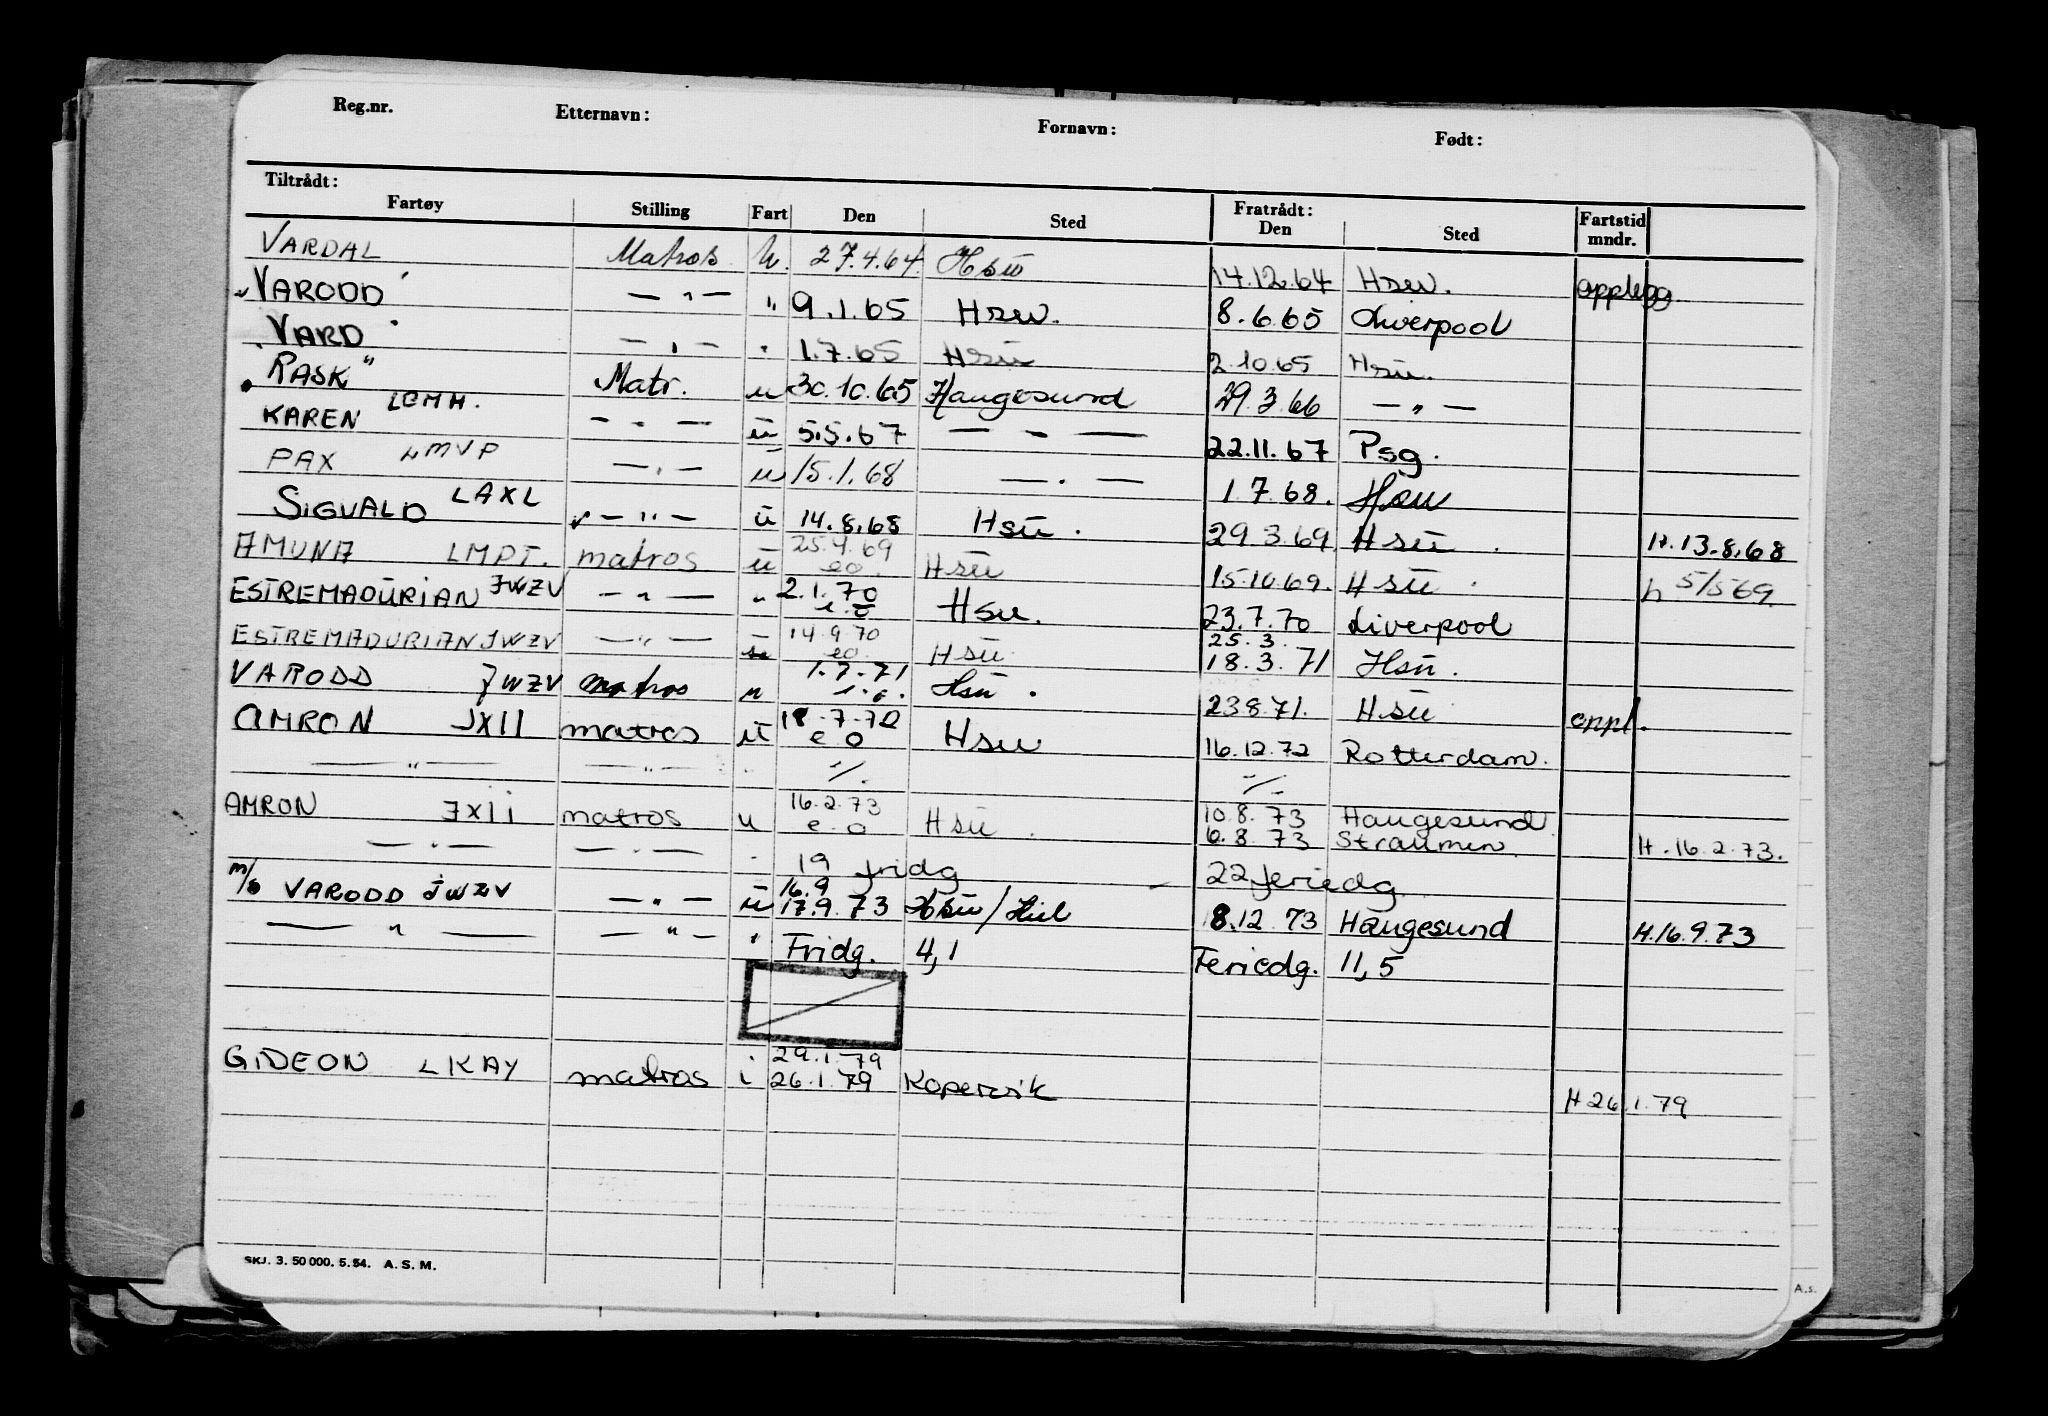 Reg.nr. Etternavn: Fornavn: Født:
Tiltrådt: Fratrådt:
Fartøy Stilling Fart Den Sted Den Sted Fartstid mndr.
VARDAL Matros u. 27.4.64. Hsu 14.12.64 Hsu. opplegg
"VARODD" — " — " 9.1.65 Hsu. 8.6.65 Liverpool
"VARD" — " — " 1.7.65 Hsu 2.10.65 Hsu.
"RASK" Matr. u 30.10.65 Haugesund 29.3.66 — " —
KAREN LCMH. — " — u 5.5.67 — " — 22.11.67 Psg.
PAX LMVP — " — u 15.1.68 — " — 1.7.68. Hsu
SIGVALD LAXL — " — u 14.8.68 Hsu. 29.3.69 Hsu. H.13.8.68
AMUNA LMPT. matros u 25.4.69 eo. Hsu 15.10.69. Hsu. h 5/5 69.
ESTREMADURIAN JWZV — " — " 2.1.70 e.o Hsu. 23.7.70 Liverpool
ESTREMADURIAN JWZV — " — u 14.9.70 eo. Hsu 25.3. 18.3.71 Hsu.
VARODD JWZV matros u 1.7.71 e.o. Hsu. 23.8.71. Hsu oppl.
AMRON JXII matros u 18-7-72 e o Hsu 16.12.72 Rotterdam.
— " — — " — " -/. -/.
AMRON JXII matros u 16.2.73 e.o Hsu. 10.8.73 Haugesund.
— " — — " — " 6.8.73 Straumen. H.16.2.73.
19 fridg 22 feriedg
m/s VARODD JWZV — " — u 16.9 17.9.73 Hsu/Kiel 8.12.73 Haugesund H.16.9.73
— " — — " — " Fridg. 4,1 Feriedg. 11,5
GIDEON LKAY matros i 29.1.79 26.1.79 Kopervik H 26.1.79
SKJ. 3. 50 000. 5. 54. A. S. M.
A.s.